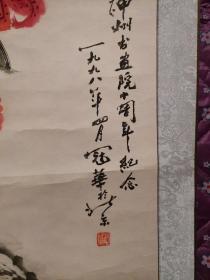 神州书画院十周年纪念
一九九八年四月冠华於北京